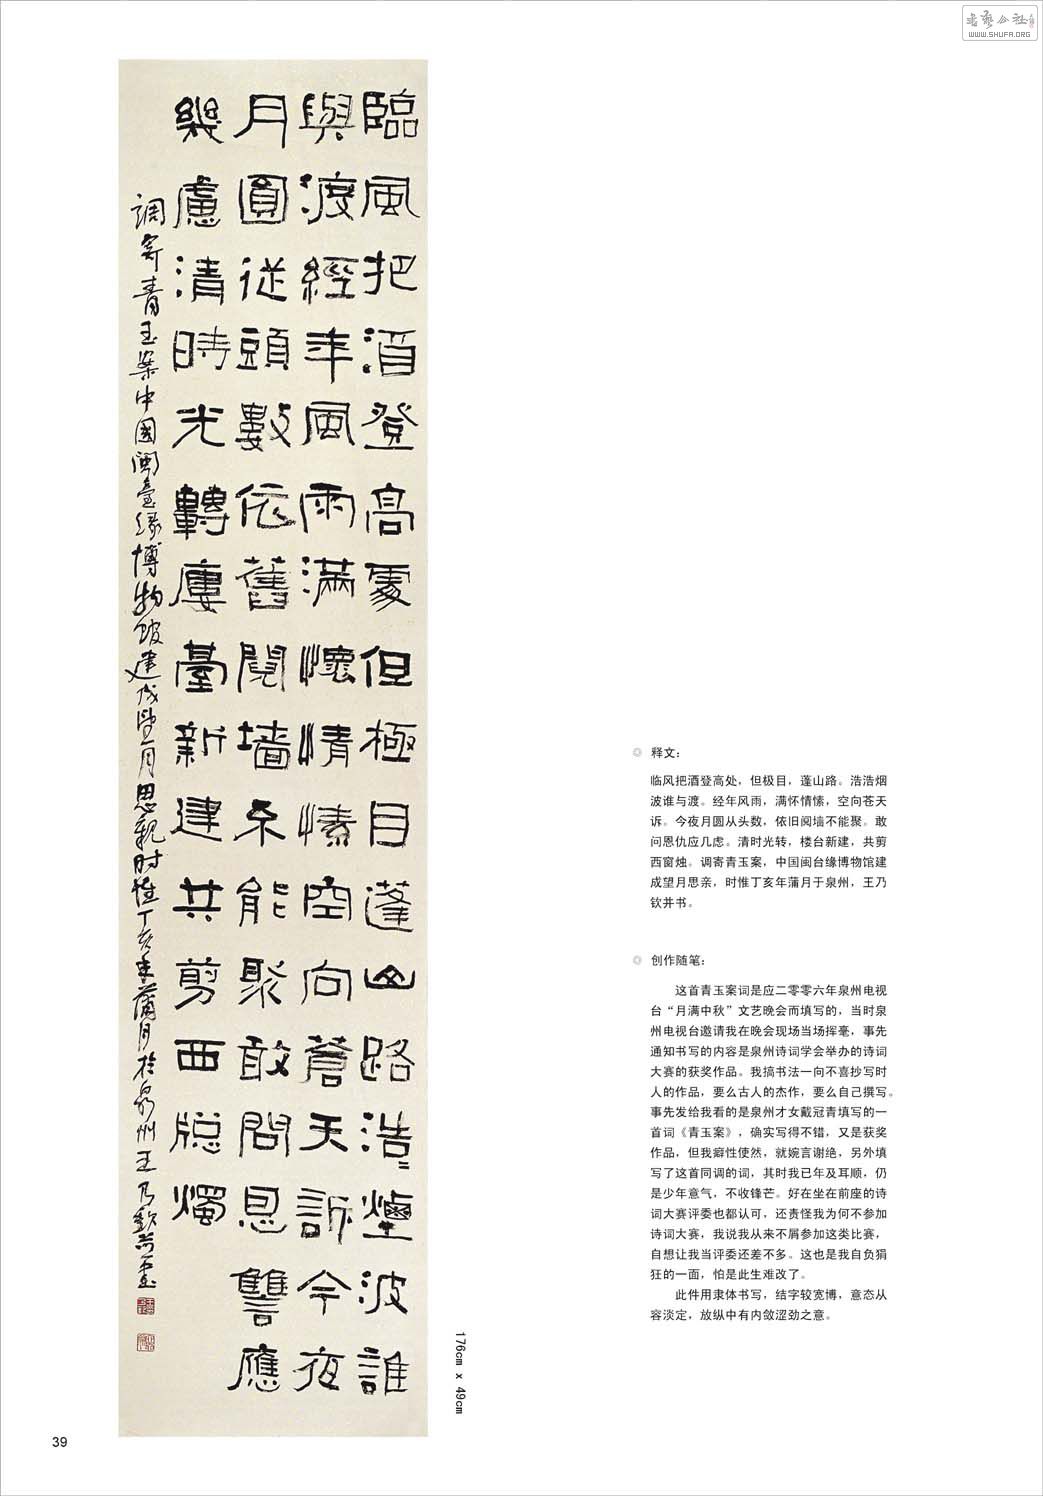 書藝公社
WWW.SHUFA.ORG
臨風把酒登高處但極目蓬山路浩〻煙波誰
與渡經年風雨滿懷情愫空向蒼天訴今夜
月圓從頭數依舊鬩墻不能聚敢問恩讐應
幾慮清時光轉廔臺新建共剪西牕燭
調寄青玉案中國閩臺緣博物館建成望月思親时惟丁亥年蒲月於泉州王乃欽并書
176cm x 49cm
释文：
临风把酒登高处，但极目，蓬山路。浩浩烟
波谁与渡。经年风雨，满怀情愫，空向苍天
诉。今夜月圆从头数，依旧阋墙不能聚。敢
问恩仇应几虑。清时光转，楼台新建，共剪
西窗烛。调寄青玉案，中国闽台缘博物馆建
成望月思亲，时惟丁亥年蒲月于泉州，王乃
钦并书。
创作随笔：
这首青玉案词是应二零零六年泉州电视
台“月满中秋”文艺晚会而填写的，当时泉
州电视台邀请我在晚会现场当场挥毫，事先
通知书写的内容是泉州诗词学会举办的诗词
大赛的获奖作品。我搞书法一向不喜抄写时
人的作品，要么古人的杰作，要么自己撰写。
事先发给我看的是泉州才女戴冠青填写的一
首词《青玉案》，确实写得不错，又是获奖
作品，但我癖性使然，就婉言谢绝，另外填
写了这首同调的词，其时我已年及耳顺，仍
是少年意气，不收锋芒。好在坐在前座的诗
词大赛评委也都认可，还责怪我为何不参加
诗词大赛，我说我从来不屑参加这类比赛，
自想让我当评委还差不多。这也是我自负狷
狂的一面，怕是此生难改了。
此件用隶体书写，结字较宽博，意态从
容淡定，放纵中有内敛涩劲之意。
39